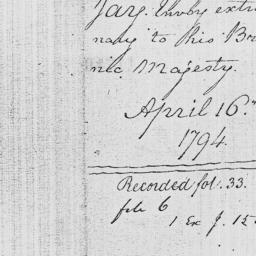 Jay. Envoy extra
nary to His Bri
nic Majesty.
April 16.
1794.
Recorded fol. 33.
file 6
1 Ex J. 15